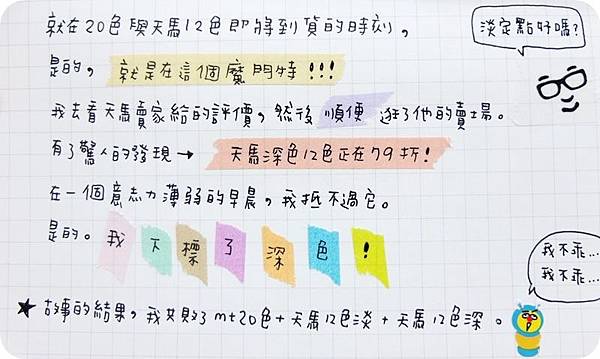 就在20色與天馬12色即將到貨的時刻，
淡定點好嗎？
是的，就是在這個魔門特!!!
我去看天馬賣家給的評價，然後順便逛了他的賣場。
有了驚人的發現→天馬深色12色正在79折!
在一個意志力薄弱的早晨，我抵不過它。
是的。我下標了深色!
我不乖...
我不乖...
★故事的結果，我失敗了mt20色+天馬12色淡+天馬12色深。